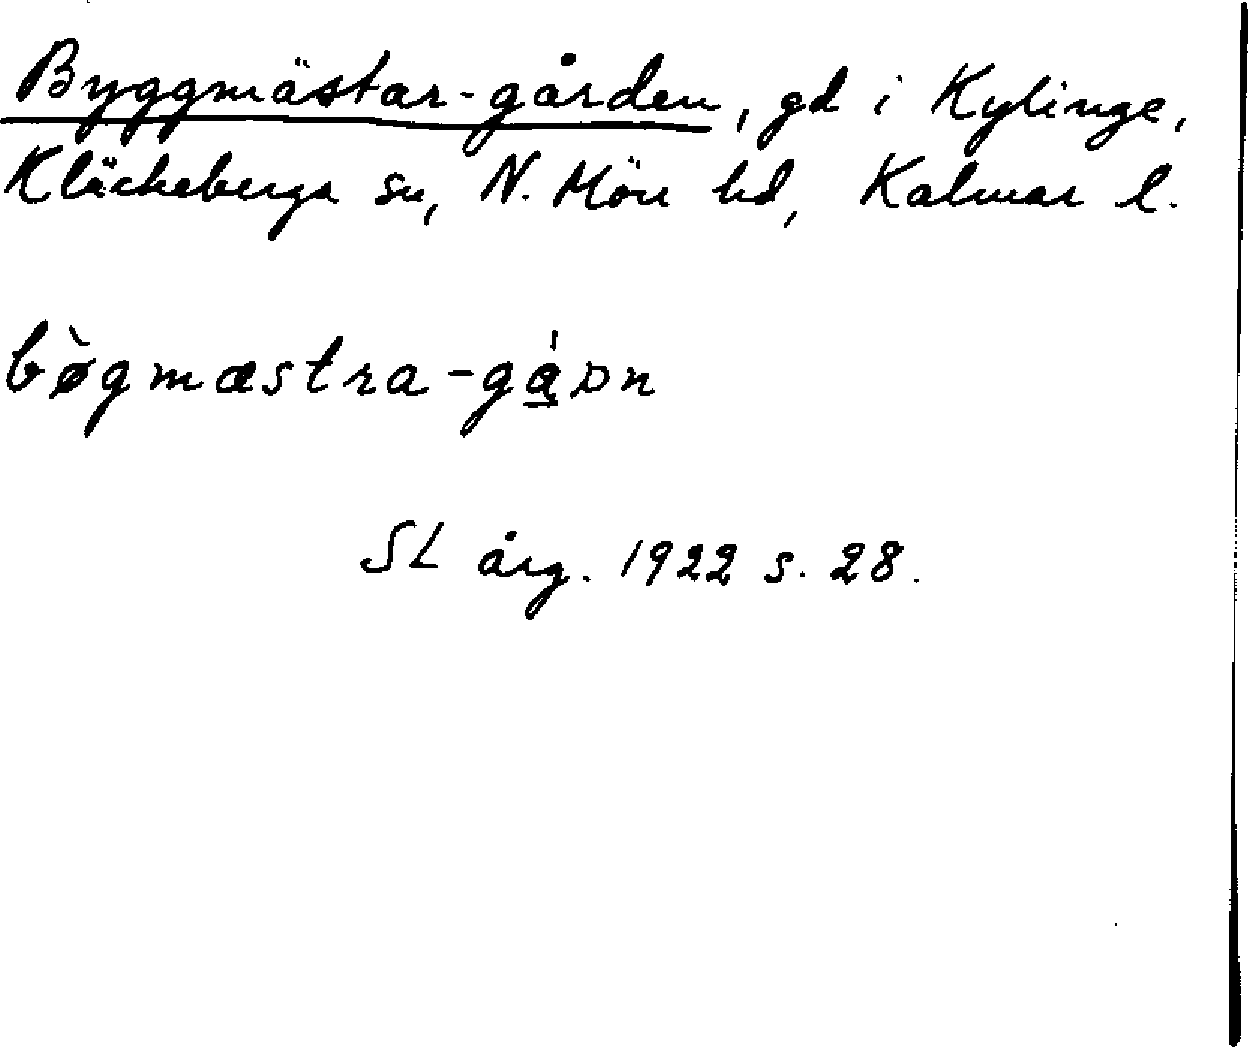 Byggmästar-gården, gd i Kylinge,
Kläckeberga sn, N. Möre hd, Kalmar l.
bø̀gmæstra-gá̱ɒn
SL årg. 1922 s. 28.